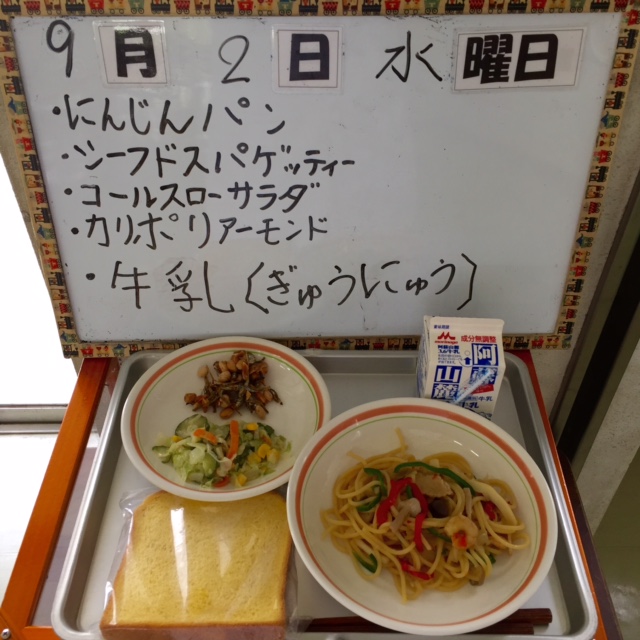 9月2日水曜日
・にんじんパン
・シーフドスパゲッティー
・コールスローサラダ
・カリポリアーモンド
・牛乳(ぎゅうにゅう)
成分無調整
森永
阿蘇
山麓
牛乳